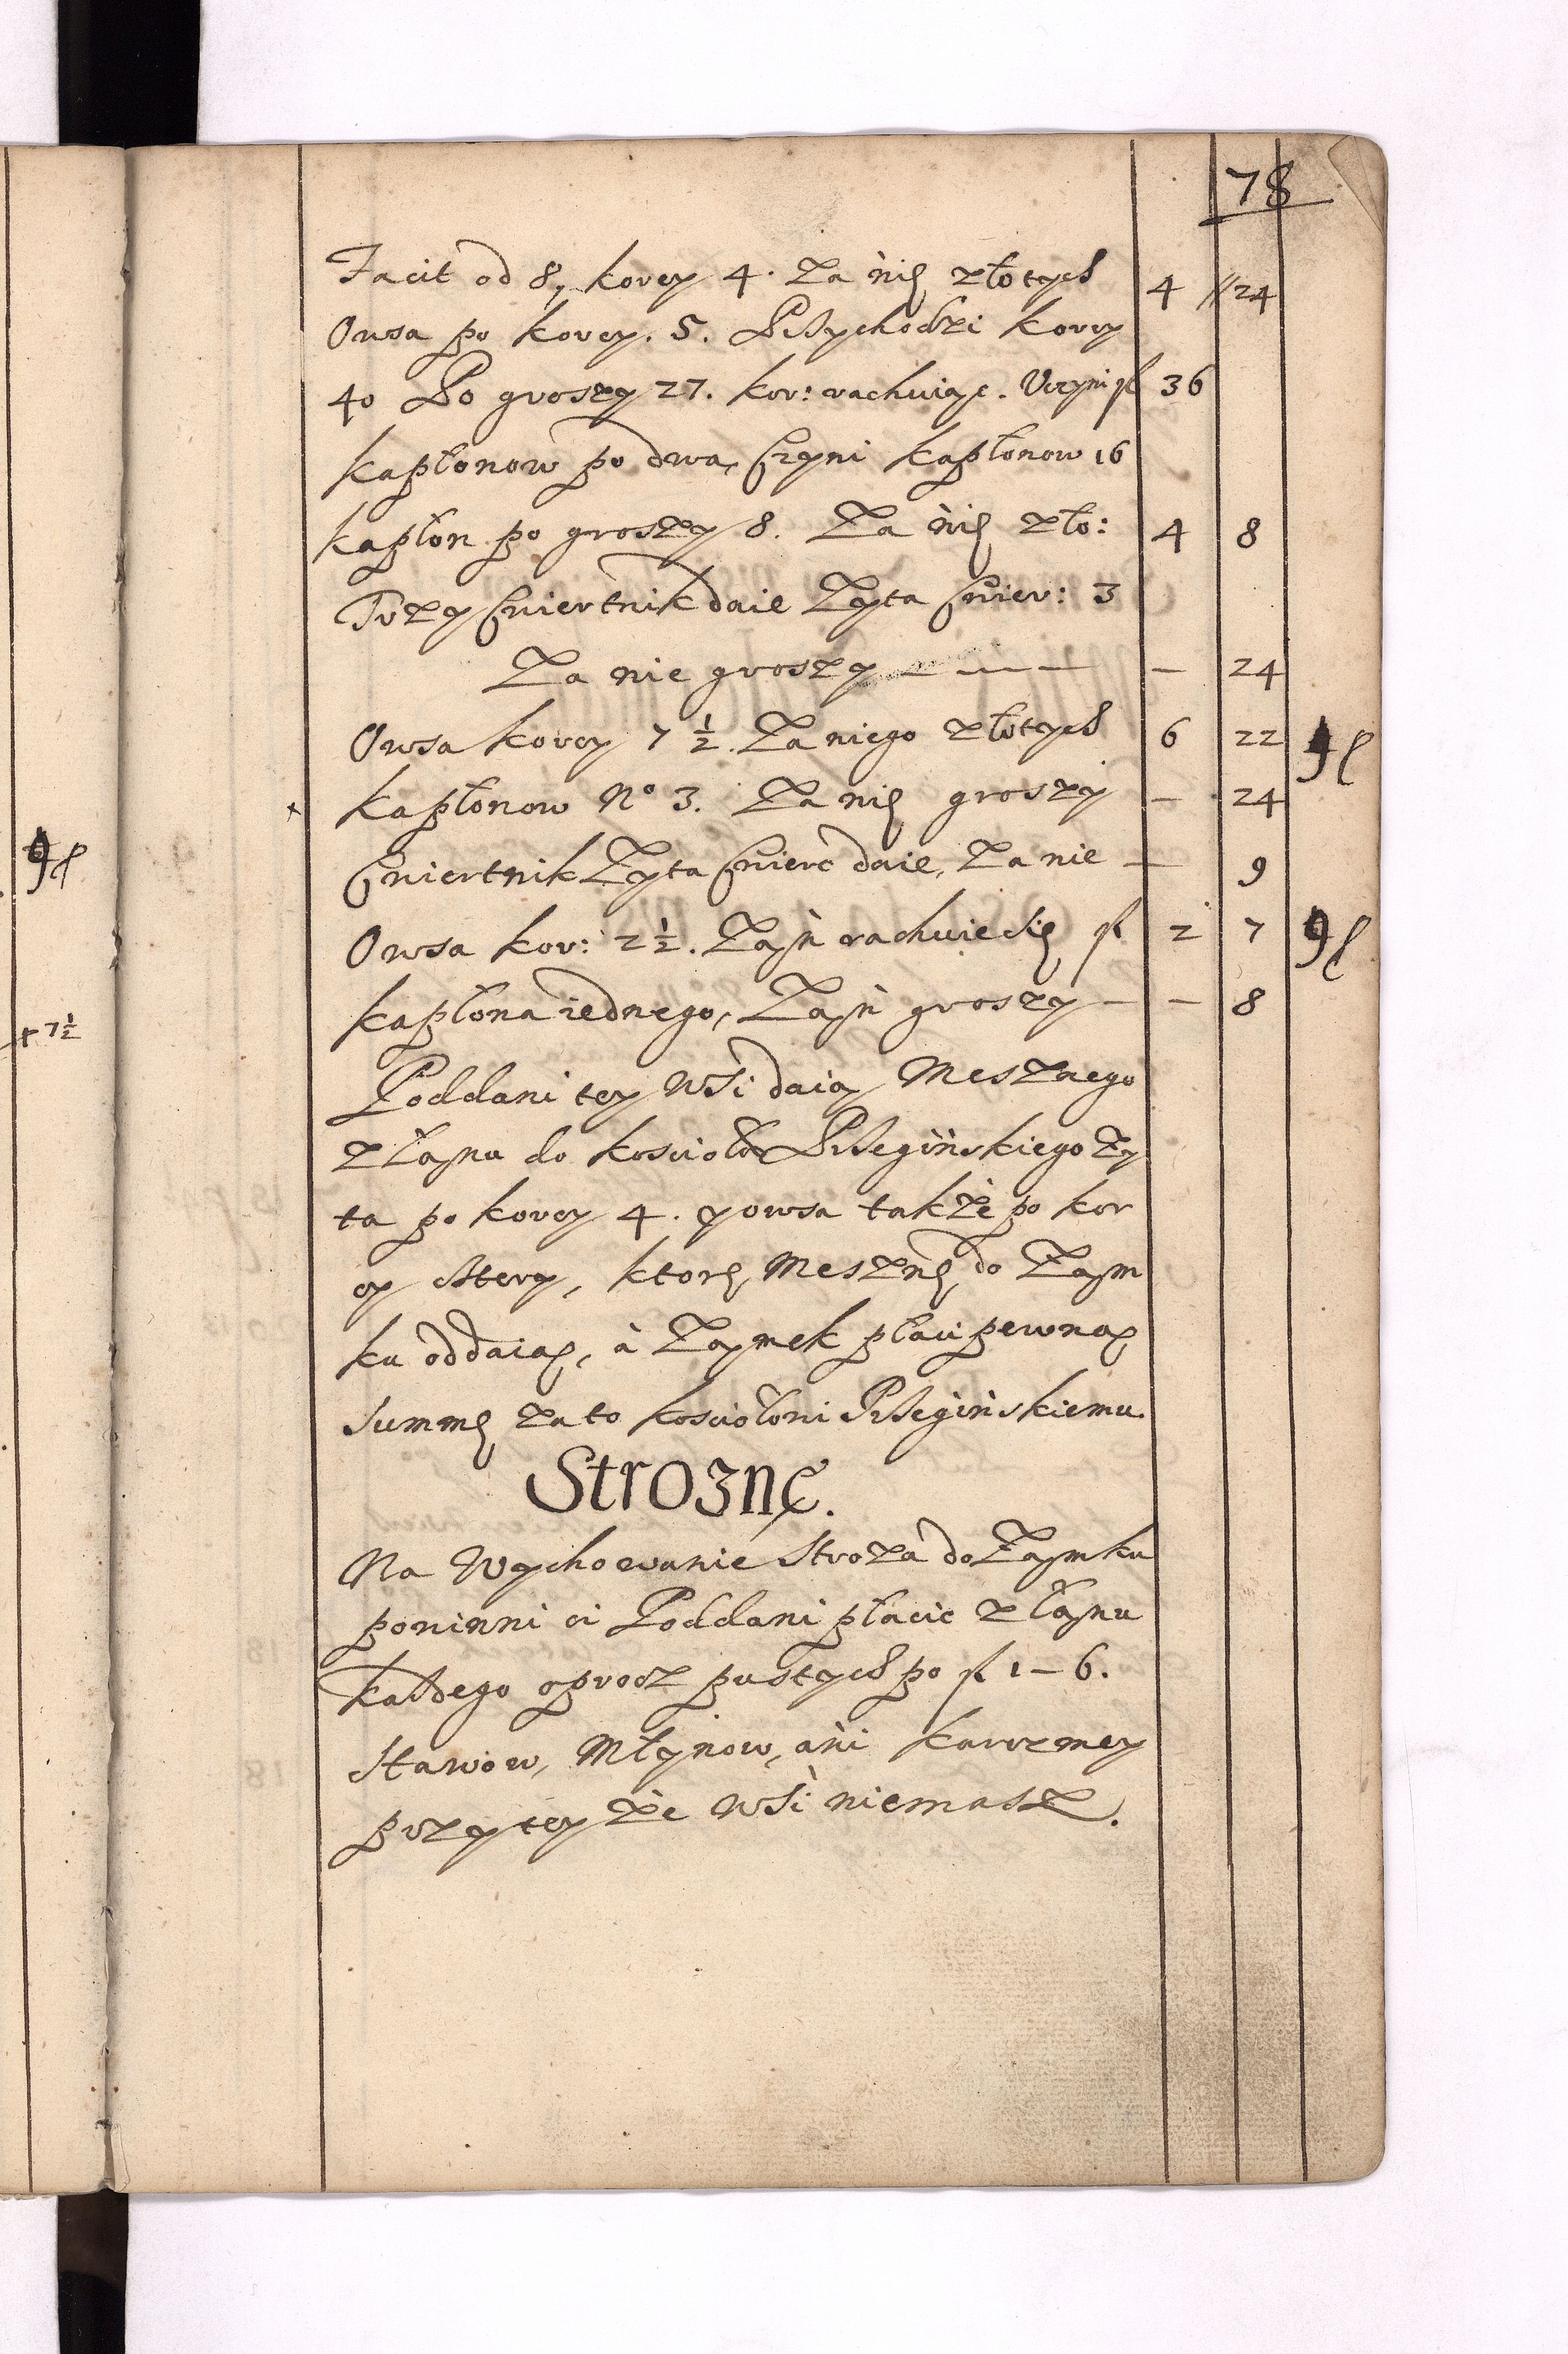 78
Facit od 8, korcy 4. Za nię złotych 4 // 24
Owsa po korcy. 5. Przychodzi korcy
40 Po groszy 27. kor: rachuiąc. Uczyni fl 36
kapłonow po dwa, Czyni kapłonow 16
kapłon po groszy 8. Za nię zło: 4 8
Trzy Cwiertnik daie Zyta Cwier: 3
Za nie groszy — — — — 24
Owsa korcy 7 ½. Za niego złotych 6 22
kapłonow No 3. Za nię groszy — 24
Cwiertnik Zyta Cwierc daie, Za nie — 9
Owsa kor: 2 ½. Zań rachuie się fl 2 7
kapłona iednego, Zań groszy — — 8
Poddani tey Wsi daią Mesznego
z łanu do koscioła Przegińskiego Zy
ta po korcy 4. y owsa także po kor
cy sztery, ktorę Mesznę do Zam
ku oddaią, à Zamek płaci pewną
summę za to kosciołowi Przegińskiemu.
Strozne.
Na Wychowanie stroza do Zamku
powinni ci Poddani płacic z łanu
każdego oprocz pustych po fl 1 – 6.
Stawow, Młynow, ani karczmey
przy tey że Wsi niemasz.
+ 7 ½